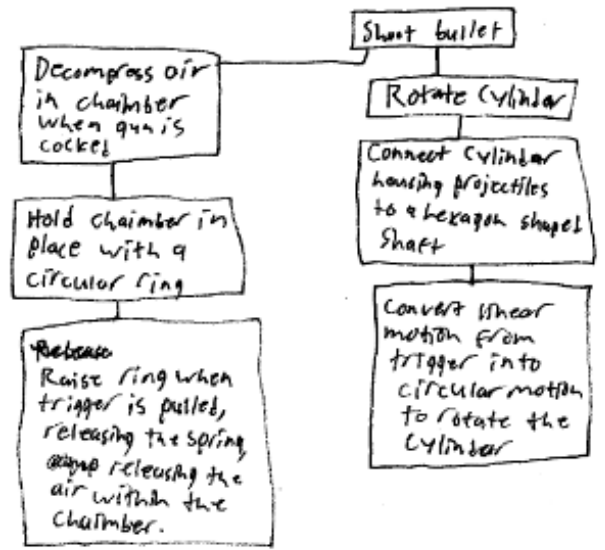 Shoot bullet
Decompress air
in chaimber
when gun is
cocked
Hold chaimber in
place with a
circular ring
Release
Raise ring when
trigger is pulled,
releasing the spring,
releasing the
air within the
chaimber.
Rotate Cylinder
Connect Cylinder
housing projectiles
to a hexagon shaped
shaft
Convert linear
motion from
trigger into
circular motion
to rotate the
Cylinder